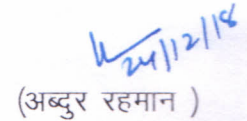 24/12/18
(अब्दुर रहमान )